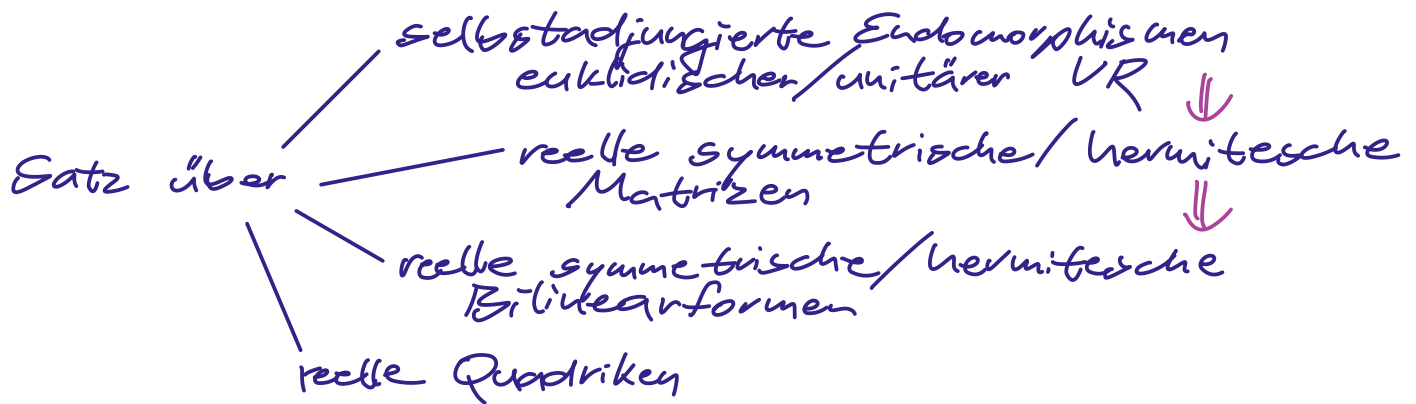 selbstadjungierte Endomorphismen
euklidischer/unitärer VR
Satz über
reelle symmetrische/hermitesche
Matrizen
reelle symmetrische/hermitesche
Bilinearformen
reelle Quadriken